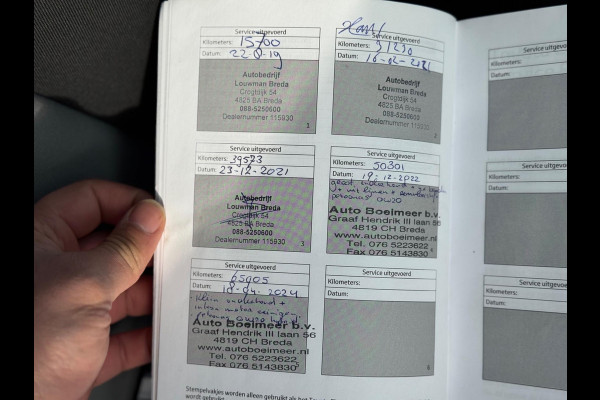 Service uitgevoerd
Kilometers: 15700
Datum: 22-8-19
Autobedrijf
Louwman Breda
Crogtdijk 54
4825 BA Breda
088-5250600
Dealernummer 115930
1
Service uitgevoerd
Kilometers: 31230
Datum: 16-02-2021
Autobedrijf
Louwman Breda
Crogtdijk 54
4825 BA Breda
088-5250600
Dealernummer 115930
2
Service uitgevoerd
Kilometers: 39523
Datum: 23-12-2021
Autobedrijf
Louwman Breda
Crogtdijk 54
4825 BA Breda
088-5250600
Dealernummer 115930
3
Service uitgevoerd
Kilometers: 50301
Datum: 19-12-2022
groot onderhoud +
0W20
Auto Boeimeer b.v.
Graaf Hendrik III laan 56
4819 CH Breda
www.autoboeimeer.nl
Tel. 076 5223622
Fax 076 5143830
Service uitgevoerd
Kilometers: 65905
Datum: 10-04-2024
Klein onderhoud +
0W20
Auto Boeimeer b.v.
Graaf Hendrik III laan 56
4819 CH Breda
www.autoboeimeer.nl
Tel. 076 5223622
Fax 076 5143830
Service uitgevoerd
Kilometers:
Datum:
6
Service uitgevoerd
Kilometers:
Datum:
Service uitgevoerd
Kilometers:
Datum:
Service
Kilometers:
Datum:
Stempelvakjes worden alleen gebruikt als het
wordt gebruikt